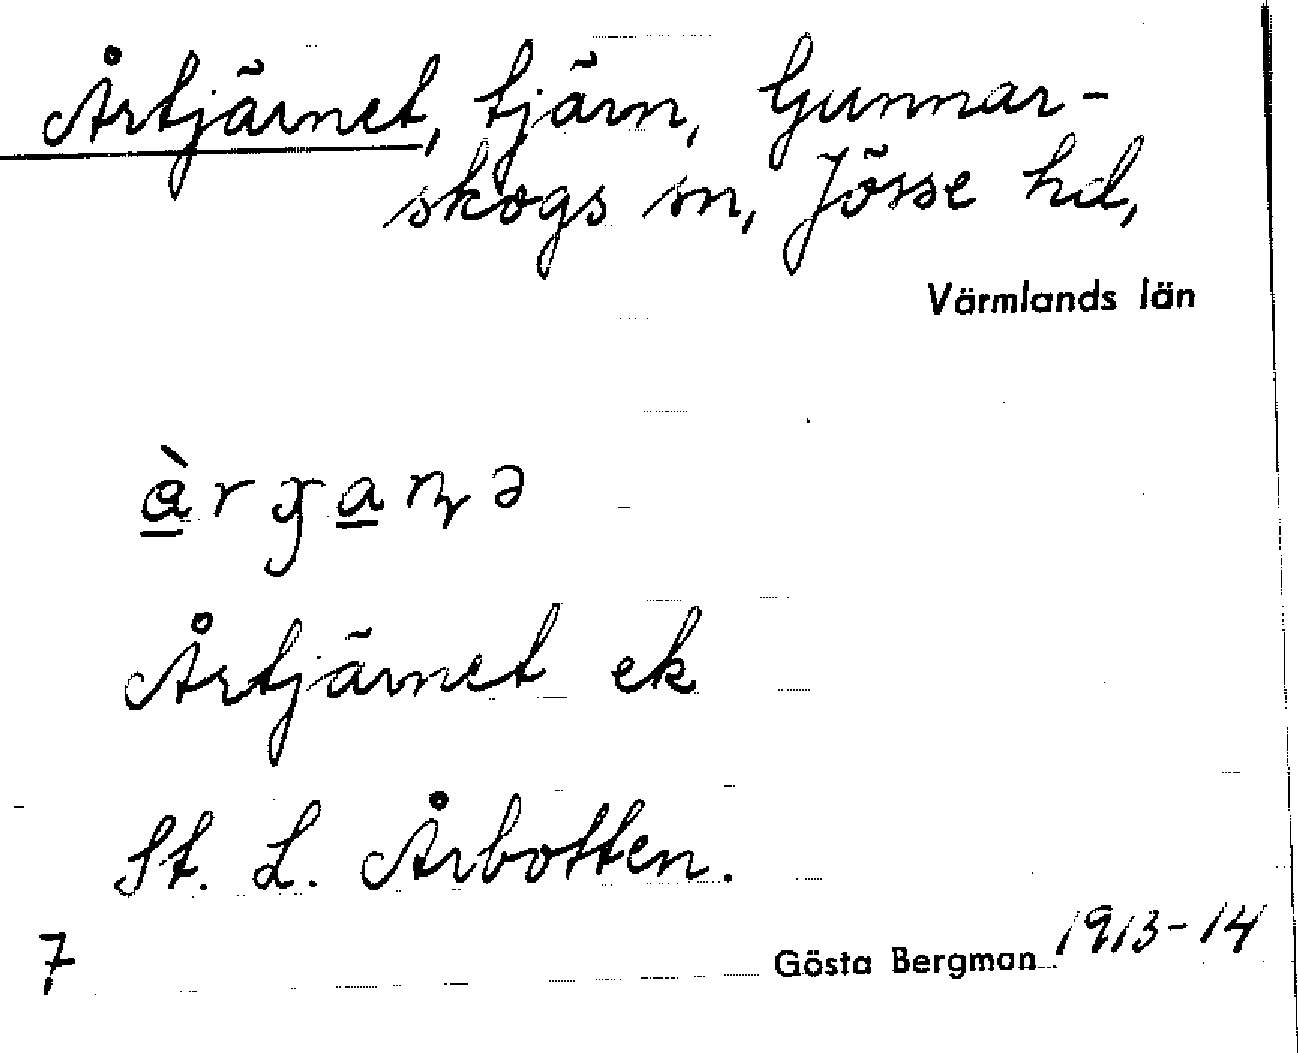 Årtjärnet, tjärn, Gunnar-
skogs sn, Jösse hd,
Värmlands län
Årtjärnet ek
St. L. Årbotten.
7
Gösta Bergman 1913-14